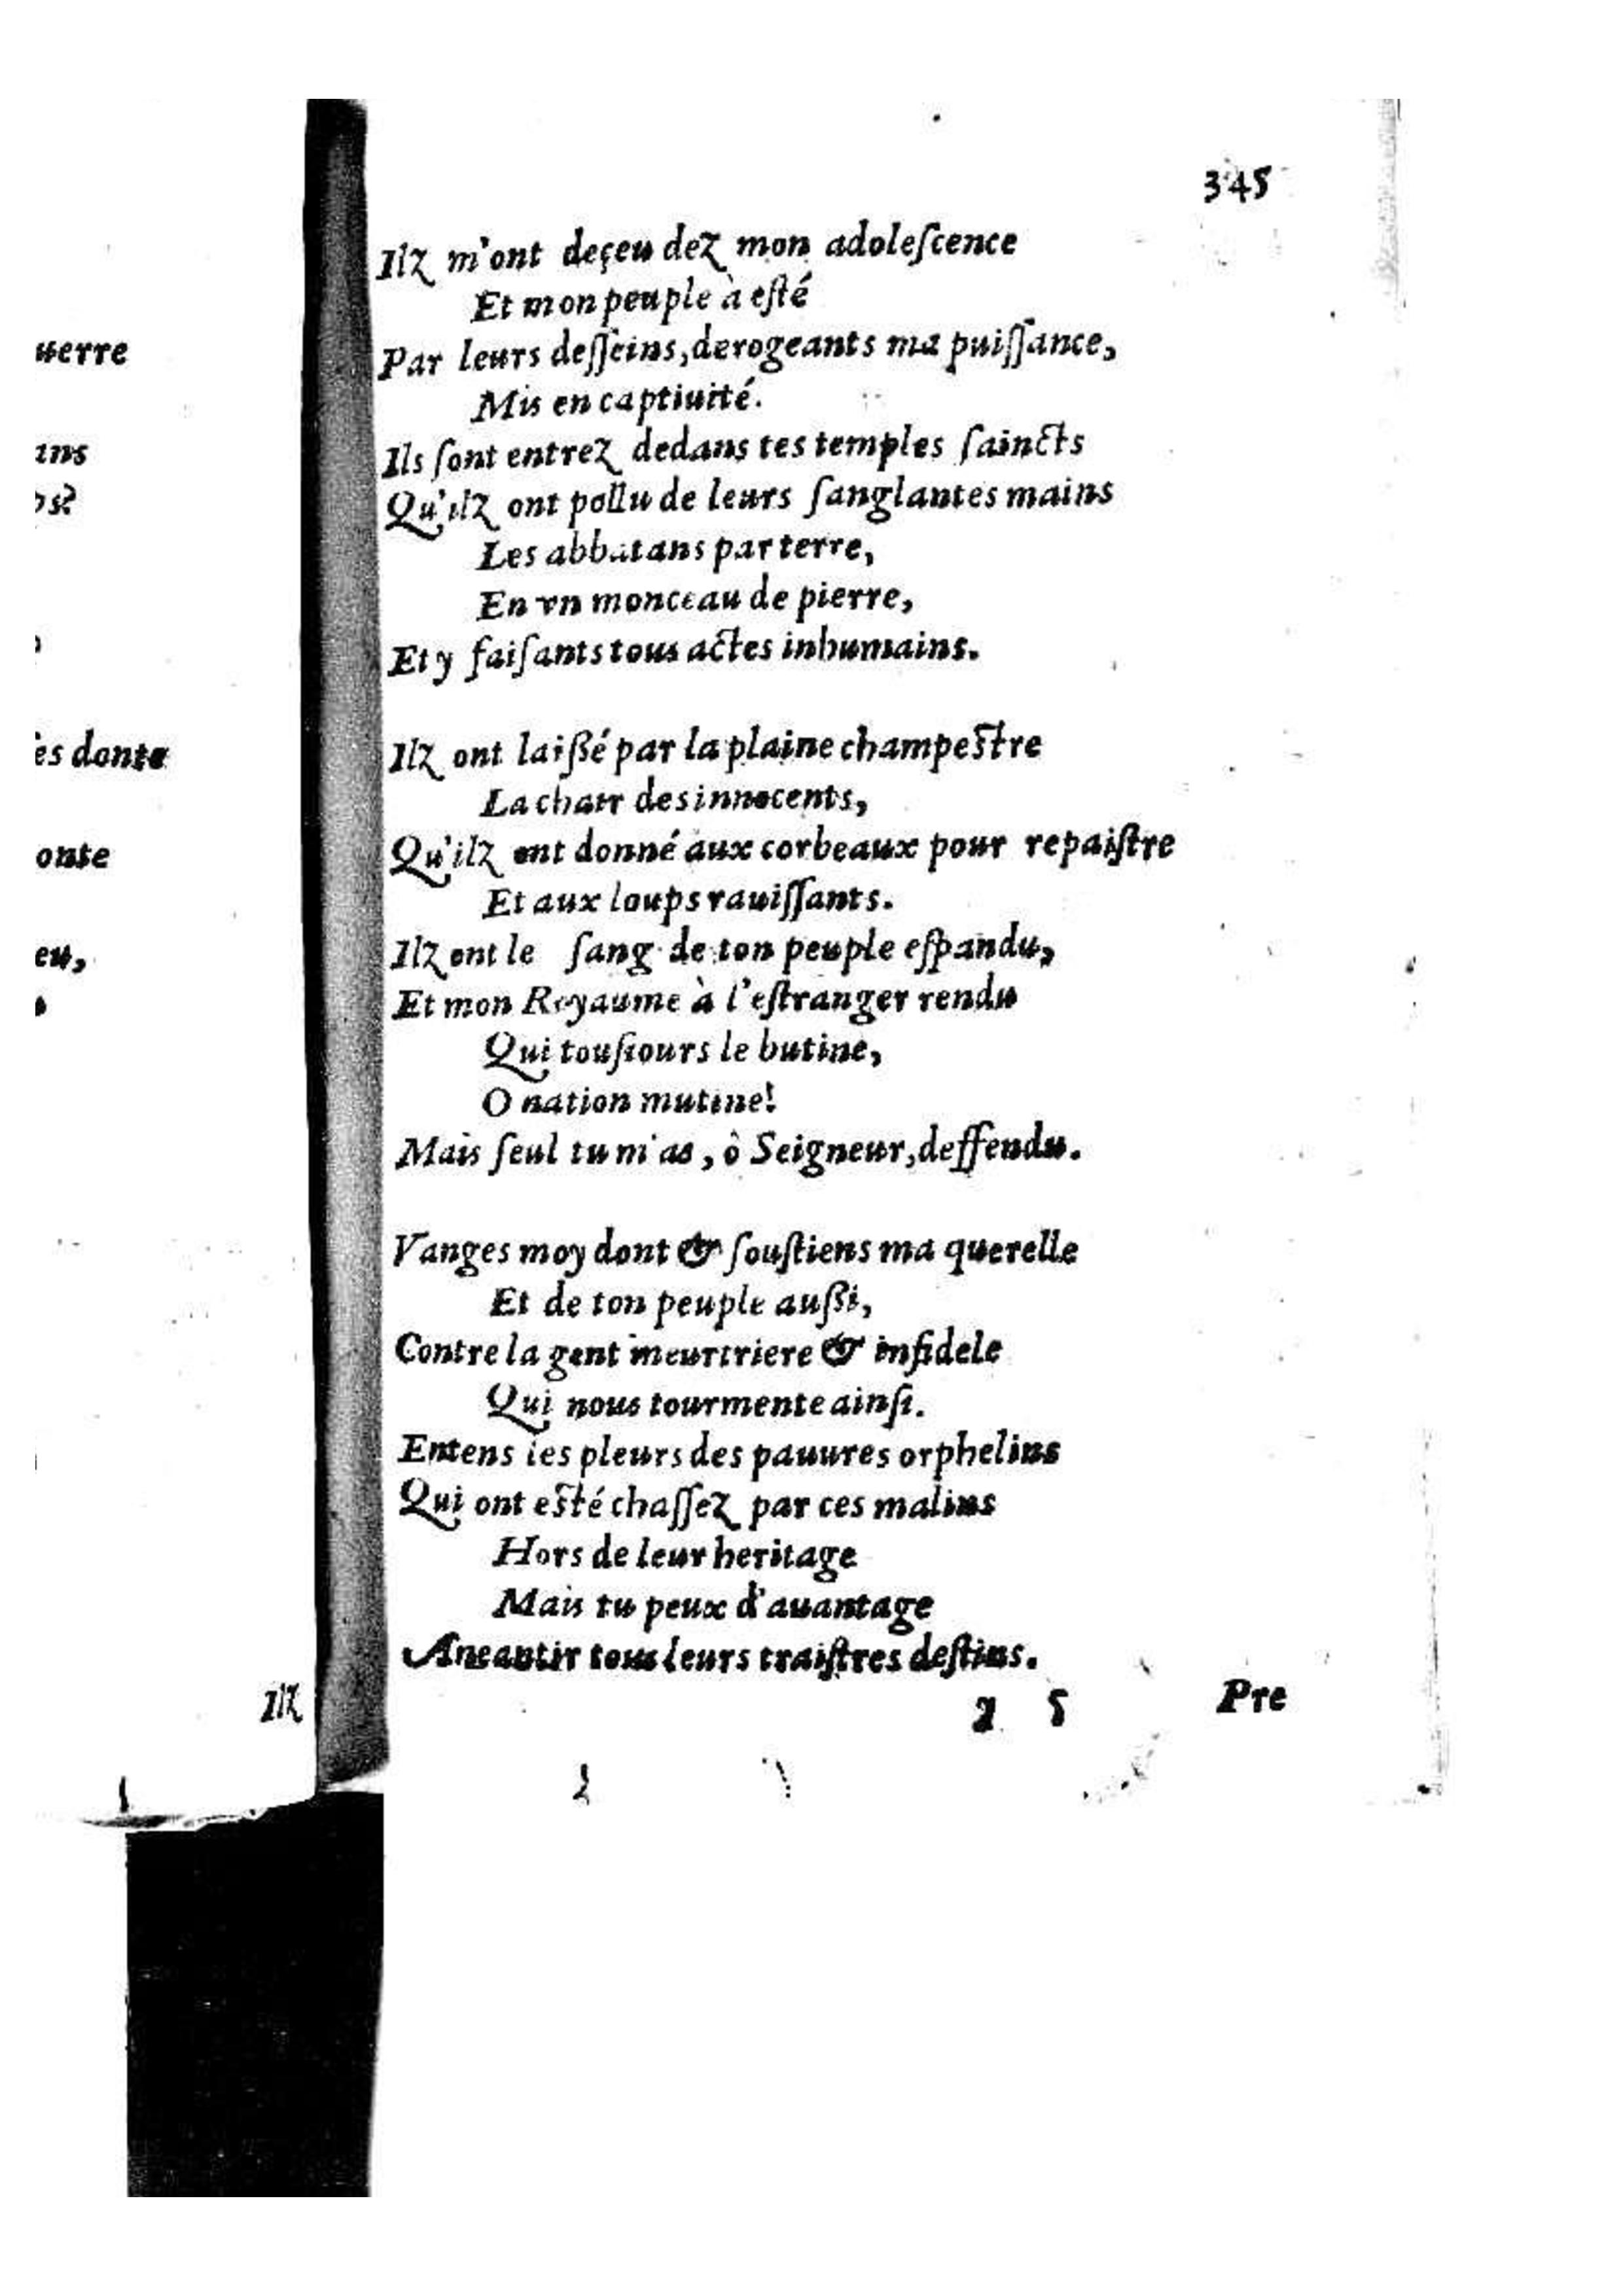 uerre
ans
es donte
onte
eu,
Ilz
345
Ilz m'ont deçeu dez mon adoleſcence
Et mon peuple à eſté
Par leurs deſſeins, derogeants ma puiſſance,
Mis en captiuité.
Ils ſont entrez dedans tes temples ſaincts
Qu'ilz ont pollu de leurs ſanglantes mains
Les abbatans par terre,
En vn monceau de pierre,
Et y faiſants tous actes inhumains.
Ilz ont laißé par la plaine champeſtre
La chair des innocents,
Qu'ilz ont donné aux corbeaux pour repaiſtre
Et aux loups rauiſſants.
Ilz ont le ſang de ton peuple eſpandu,
Et mon Royaume à l'eſtranger rendu
Qui touſiours le butine,
O nation mutine!
Mais ſeul tu m'as, ô Seigneur, deffendu.
Vanges moy dont & ſouſtiens ma querelle
Et de ton peuple außi,
Contre la gent meurtriere & infidele
Qui nous tourmente ainſi.
Entens les pleurs des pauures orphelins
Qui ont eſté chaſſez par ces malins
Hors de leur heritage
Mais tu peux d'auantage
Aneantir tous leurs traiſtres deſtins.
5 Pre